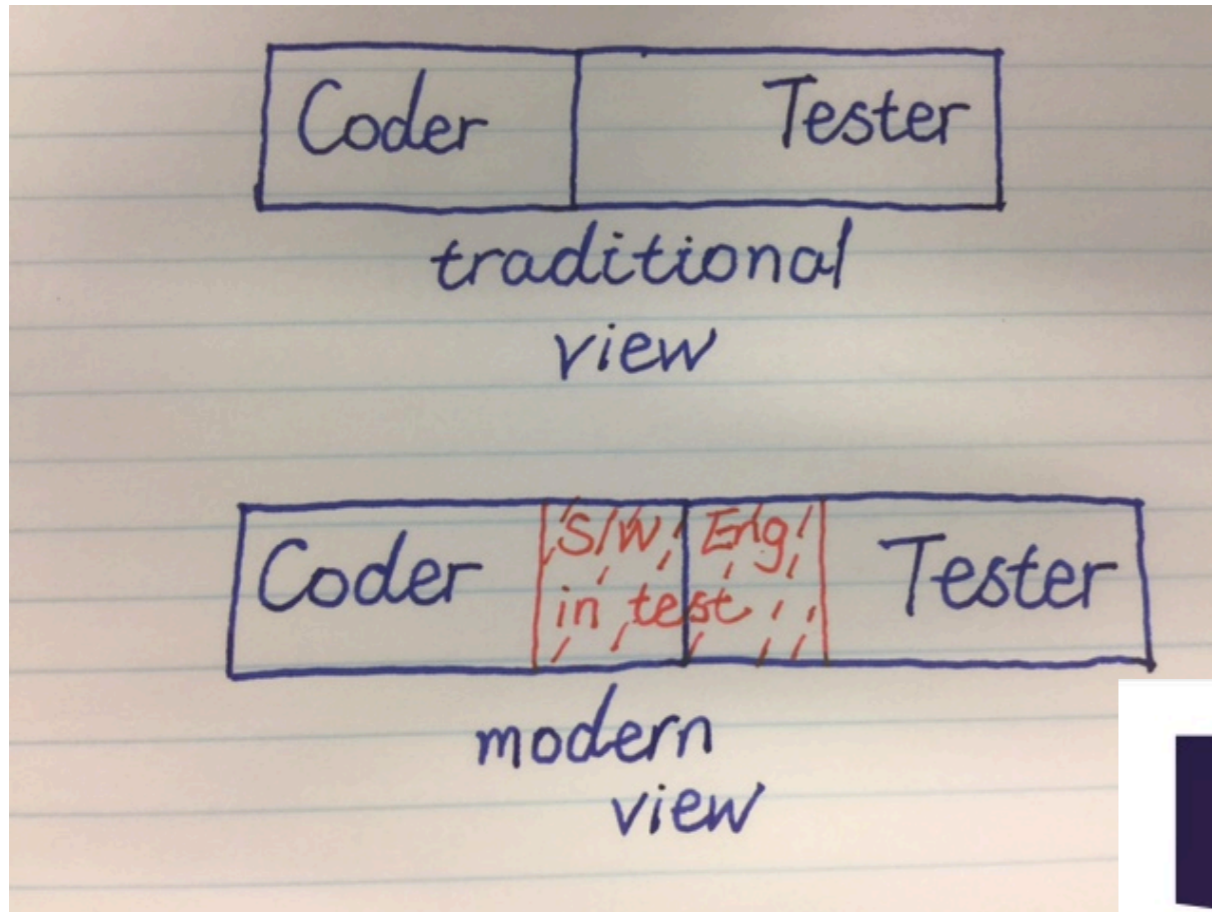 Coder Tester
traditional
view
Coder S/W Eng Tester
in test
modern
view